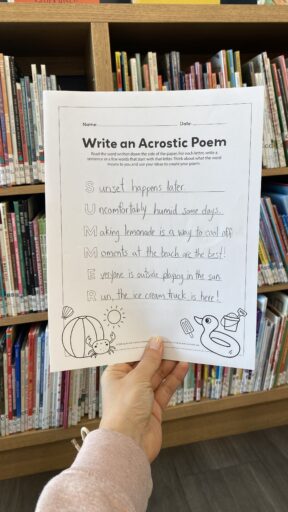 Name: Date:
Write an Acrostic Poem
Read the word written down the side of the paper. For each letter, write a
sentence or a few words that start with that letter. Think about what the word
means to you and use your ideas to create your poem.
Sunset happens later.
Uncomfortably humid some days.
Making lemonade is a way to cool off.
Moments at the beach are the best!
Everyone is outside playing in the sun.
Run, the ice cream truck is here!